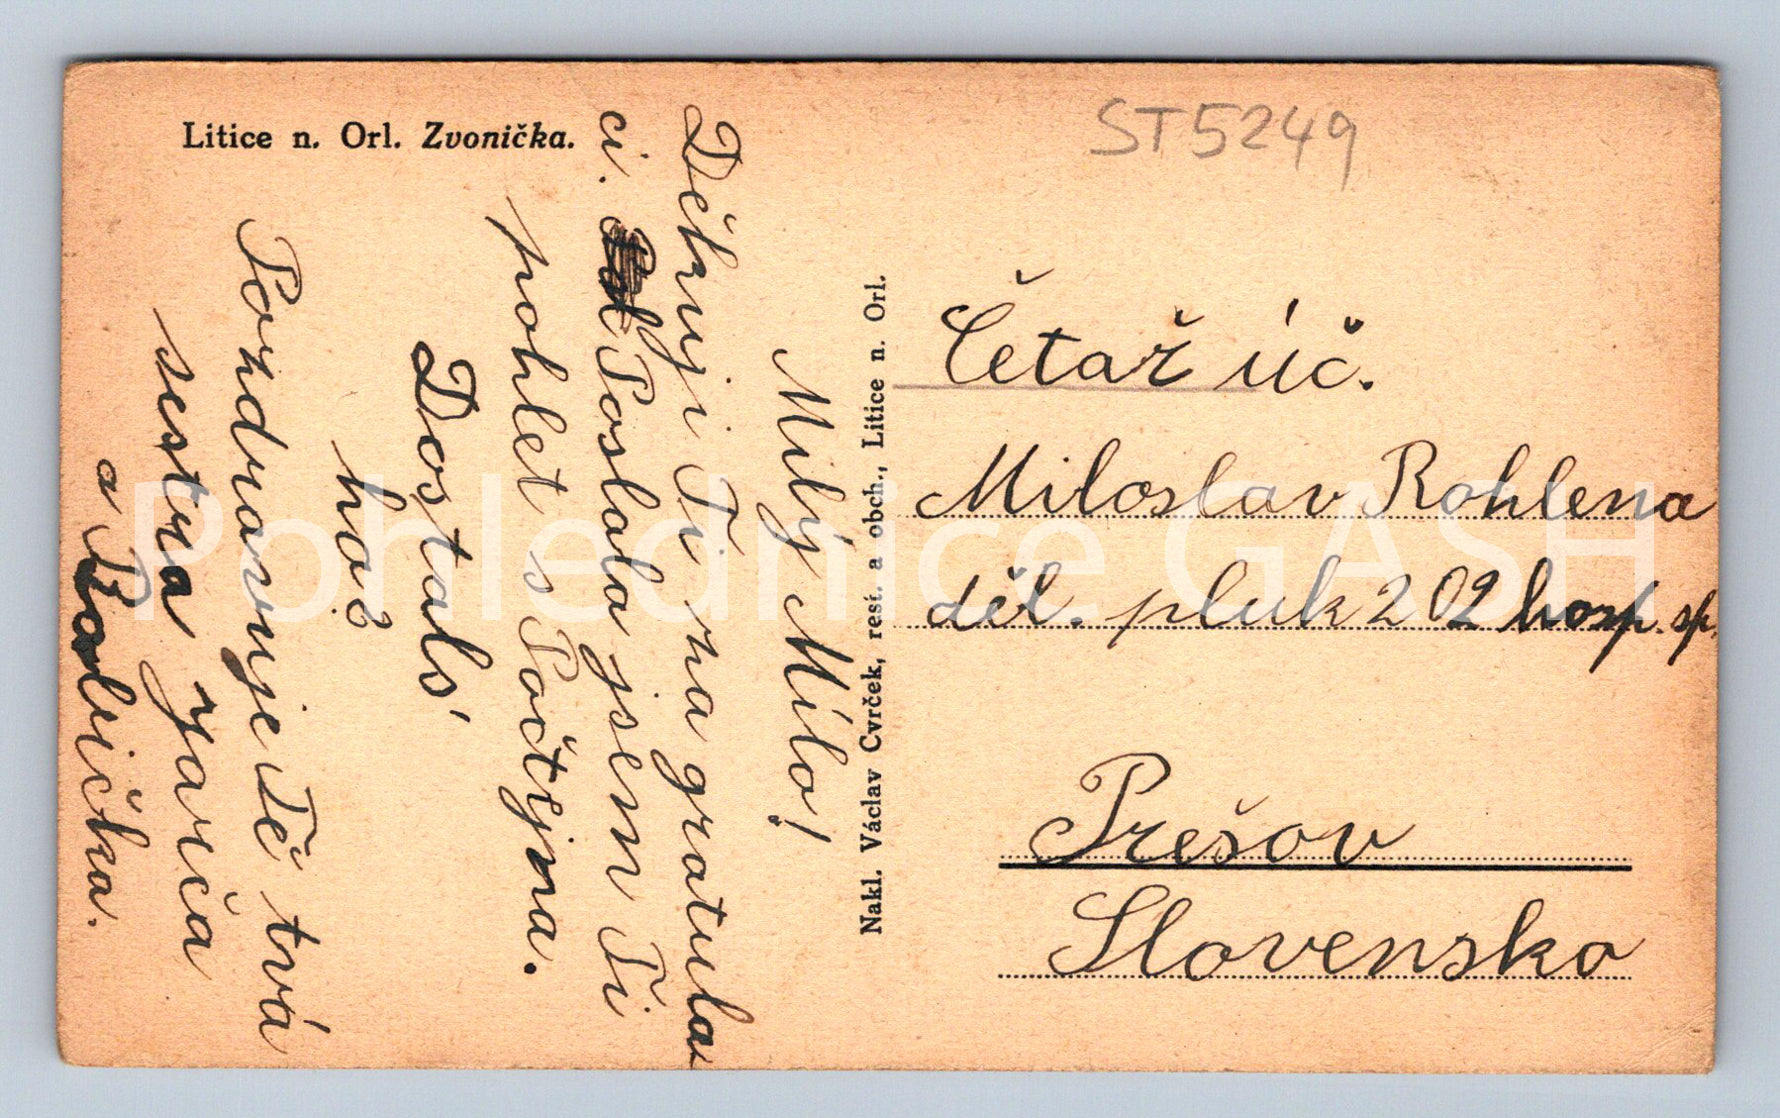 Litice n. Orl. Zvonička.
ST5249
Milý Mílo!
Děkuji Ti za gratula
ci. Poslala jsem Ti
pohlet s Počtejna.
Dostals'
ho?
Pozdravuje Tě tvá
sestra Jarča
a Babička.
Nakl. Václav Cvrček, rest. a obch., Litice n. Orl.
Četař úč.
Miloslav Rohlena
děl. pluk 202 hosp. sp.
Prešov
Slovensko
Pohlednice GASH